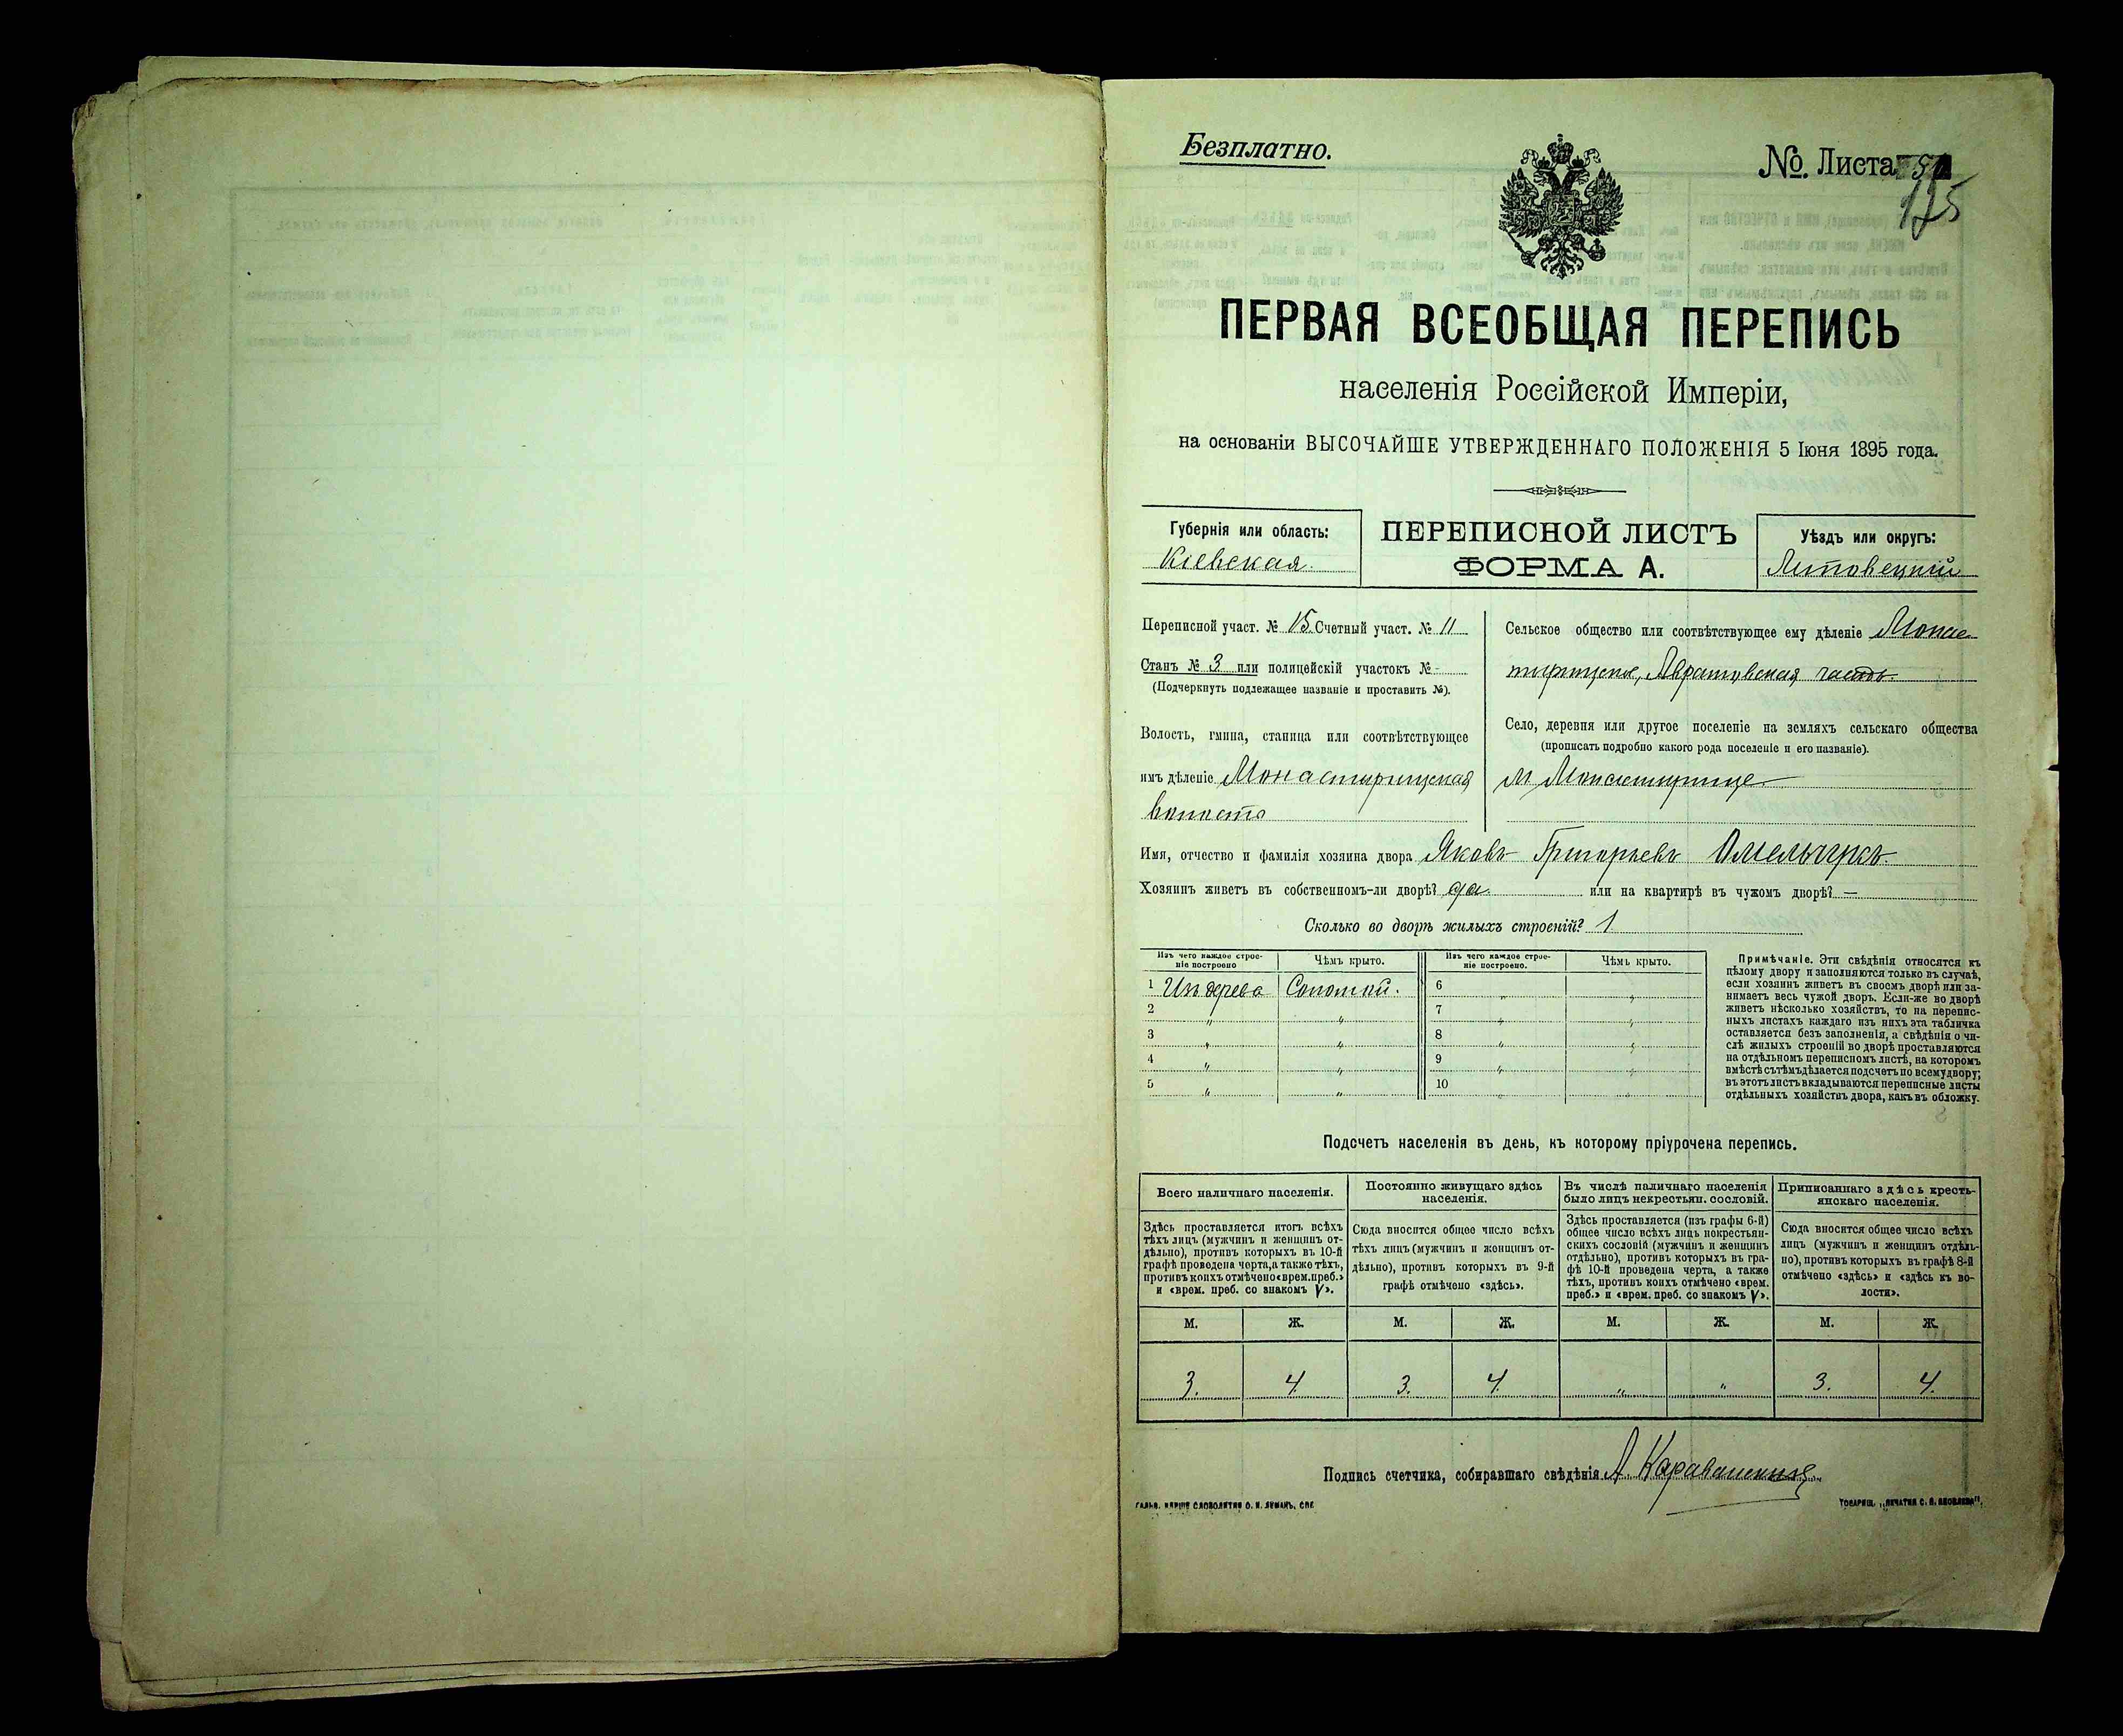 Безплатно.
№. Листа
175
ПЕРВАЯ ВСЕОБЩАЯ ПЕРЕПИСЬ
населенія Россійской Имперіи,
на основаніи ВЫСОЧАЙШЕ УТВЕРЖДЕННАГО ПОЛОЖЕНІЯ 5 Іюня 1895 года.
Губернія или область:
Кіевская.
ПЕРЕПИСНОЙ ЛИСТЪ
ФОРМА А.
Уѣздъ или округъ:
Липовецкій
Переписной участ. № 15. Счетный участ. № 11
Станъ № 3 или полицейскій участокъ № -
(Подчеркнуть подлежащее названіе и проставить №).
Волость, гмина, станица или соотвѣтствующее
имъ дѣленіе Монастырищская
волость
Сельское общество или соотвѣтствующее ему дѣленіе Монас-
тырищское, Аврамовская часть.
Село, деревня или другое поселеніе на земляхъ сельскаго общества
(прописать подробно какого рода поселеніе и его названіе).
м Монастырище
Имя, отчество и фамилія хозяина двора Яковъ Григорьевъ
Хозяинъ живетъ въ собственномъ-ли дворѣ? да. или на квартирѣ въ чужомъ дворѣ? —
Сколько во дворѣ жилыхъ строеній? 1
Изъ чего каждое строе-
ніе построено
Чѣмъ крыто.
Изъ чего каждое строе-
ніе построено.
Чѣмъ крыто.
1 Изъ дерева Соломой. 6 " "
2 " " 7 " "
3 " " 8 " "
4 " " 9 " "
5 " " 10 " "
Примѣчаніе. Эти свѣдѣнія относятся къ
цѣлому двору и заполняются только въ случаѣ,
если хозяинъ живетъ въ своемъ дворѣ или за-
нимаетъ весь чужой дворъ. Если-же во дворѣ
живетъ нѣсколько хозяйствъ, то на перепис-
ныхъ листахъ каждаго изъ нихъ эта табличка
оставляется безъ заполненія, а свѣдѣнія о чи-
слѣ жилыхъ строеній во дворѣ проставляются
на отдѣльномъ переписномъ листѣ, на которомъ
вмѣстѣ съ тѣмъ дѣлается подсчетъ по всему двору;
въ этотъ листъ вкладываются переписные листы
отдѣльныхъ хозяйствъ двора, какъ въ обложку.
Подсчетъ населенія въ день, къ которому пріурочена перепись.
Всего наличнаго населенія.
Здѣсь проставляется итогъ всѣхъ
тѣхъ лицъ (мужчинъ и женщинъ от-
дѣльно), противъ которыхъ въ 10-й
графѣ проведена черта, а также тѣхъ,
противъ коихъ отмѣчено «врем. преб.»
и «врем. преб. со знакомъ V».
Постоянно живущаго здѣсь
населенія.
Сюда вносится общее число всѣхъ
тѣхъ лицъ (мужчинъ и женщинъ от-
дѣльно), противъ которыхъ въ 9-й
графѣ отмѣчено «здѣсь».
Въ числѣ наличнаго населенія
было лицъ некрестьян. сословій.
Здѣсь проставляется (изъ графы 6-й)
общее число всѣхъ лицъ некрестьян-
скихъ сословій (мужчинъ и женщинъ
отдѣльно), противъ которыхъ въ гра-
фѣ 10-й проведена черта, а также
тѣхъ, противъ коихъ отмѣчено «врем.
преб.» и «врем. преб. со знакомъ V».
Приписаннаго здѣсь кресть-
янскаго населенія.
Сюда вносится общее число всѣхъ
лицъ (мужчинъ и женщинъ отдѣль-
но), противъ которыхъ въ графѣ 8-й
отмѣчено «здѣсь» и «здѣсь къ во-
лости».
М. Ж. М. Ж. М. Ж. М. Ж.
3. 4 3. 4. " " 3. 4.
Подпись счетчика, собиравшаго свѣдѣнія А.
ГАЛЬВ. КЛИШЕ СЛОВОЛИТНИ О. И. ЛЕМАНЪ, СПБ.
ТОВАРИЩ. „ПЕЧАТНЯ С. П. ЯКОВЛЕВА",